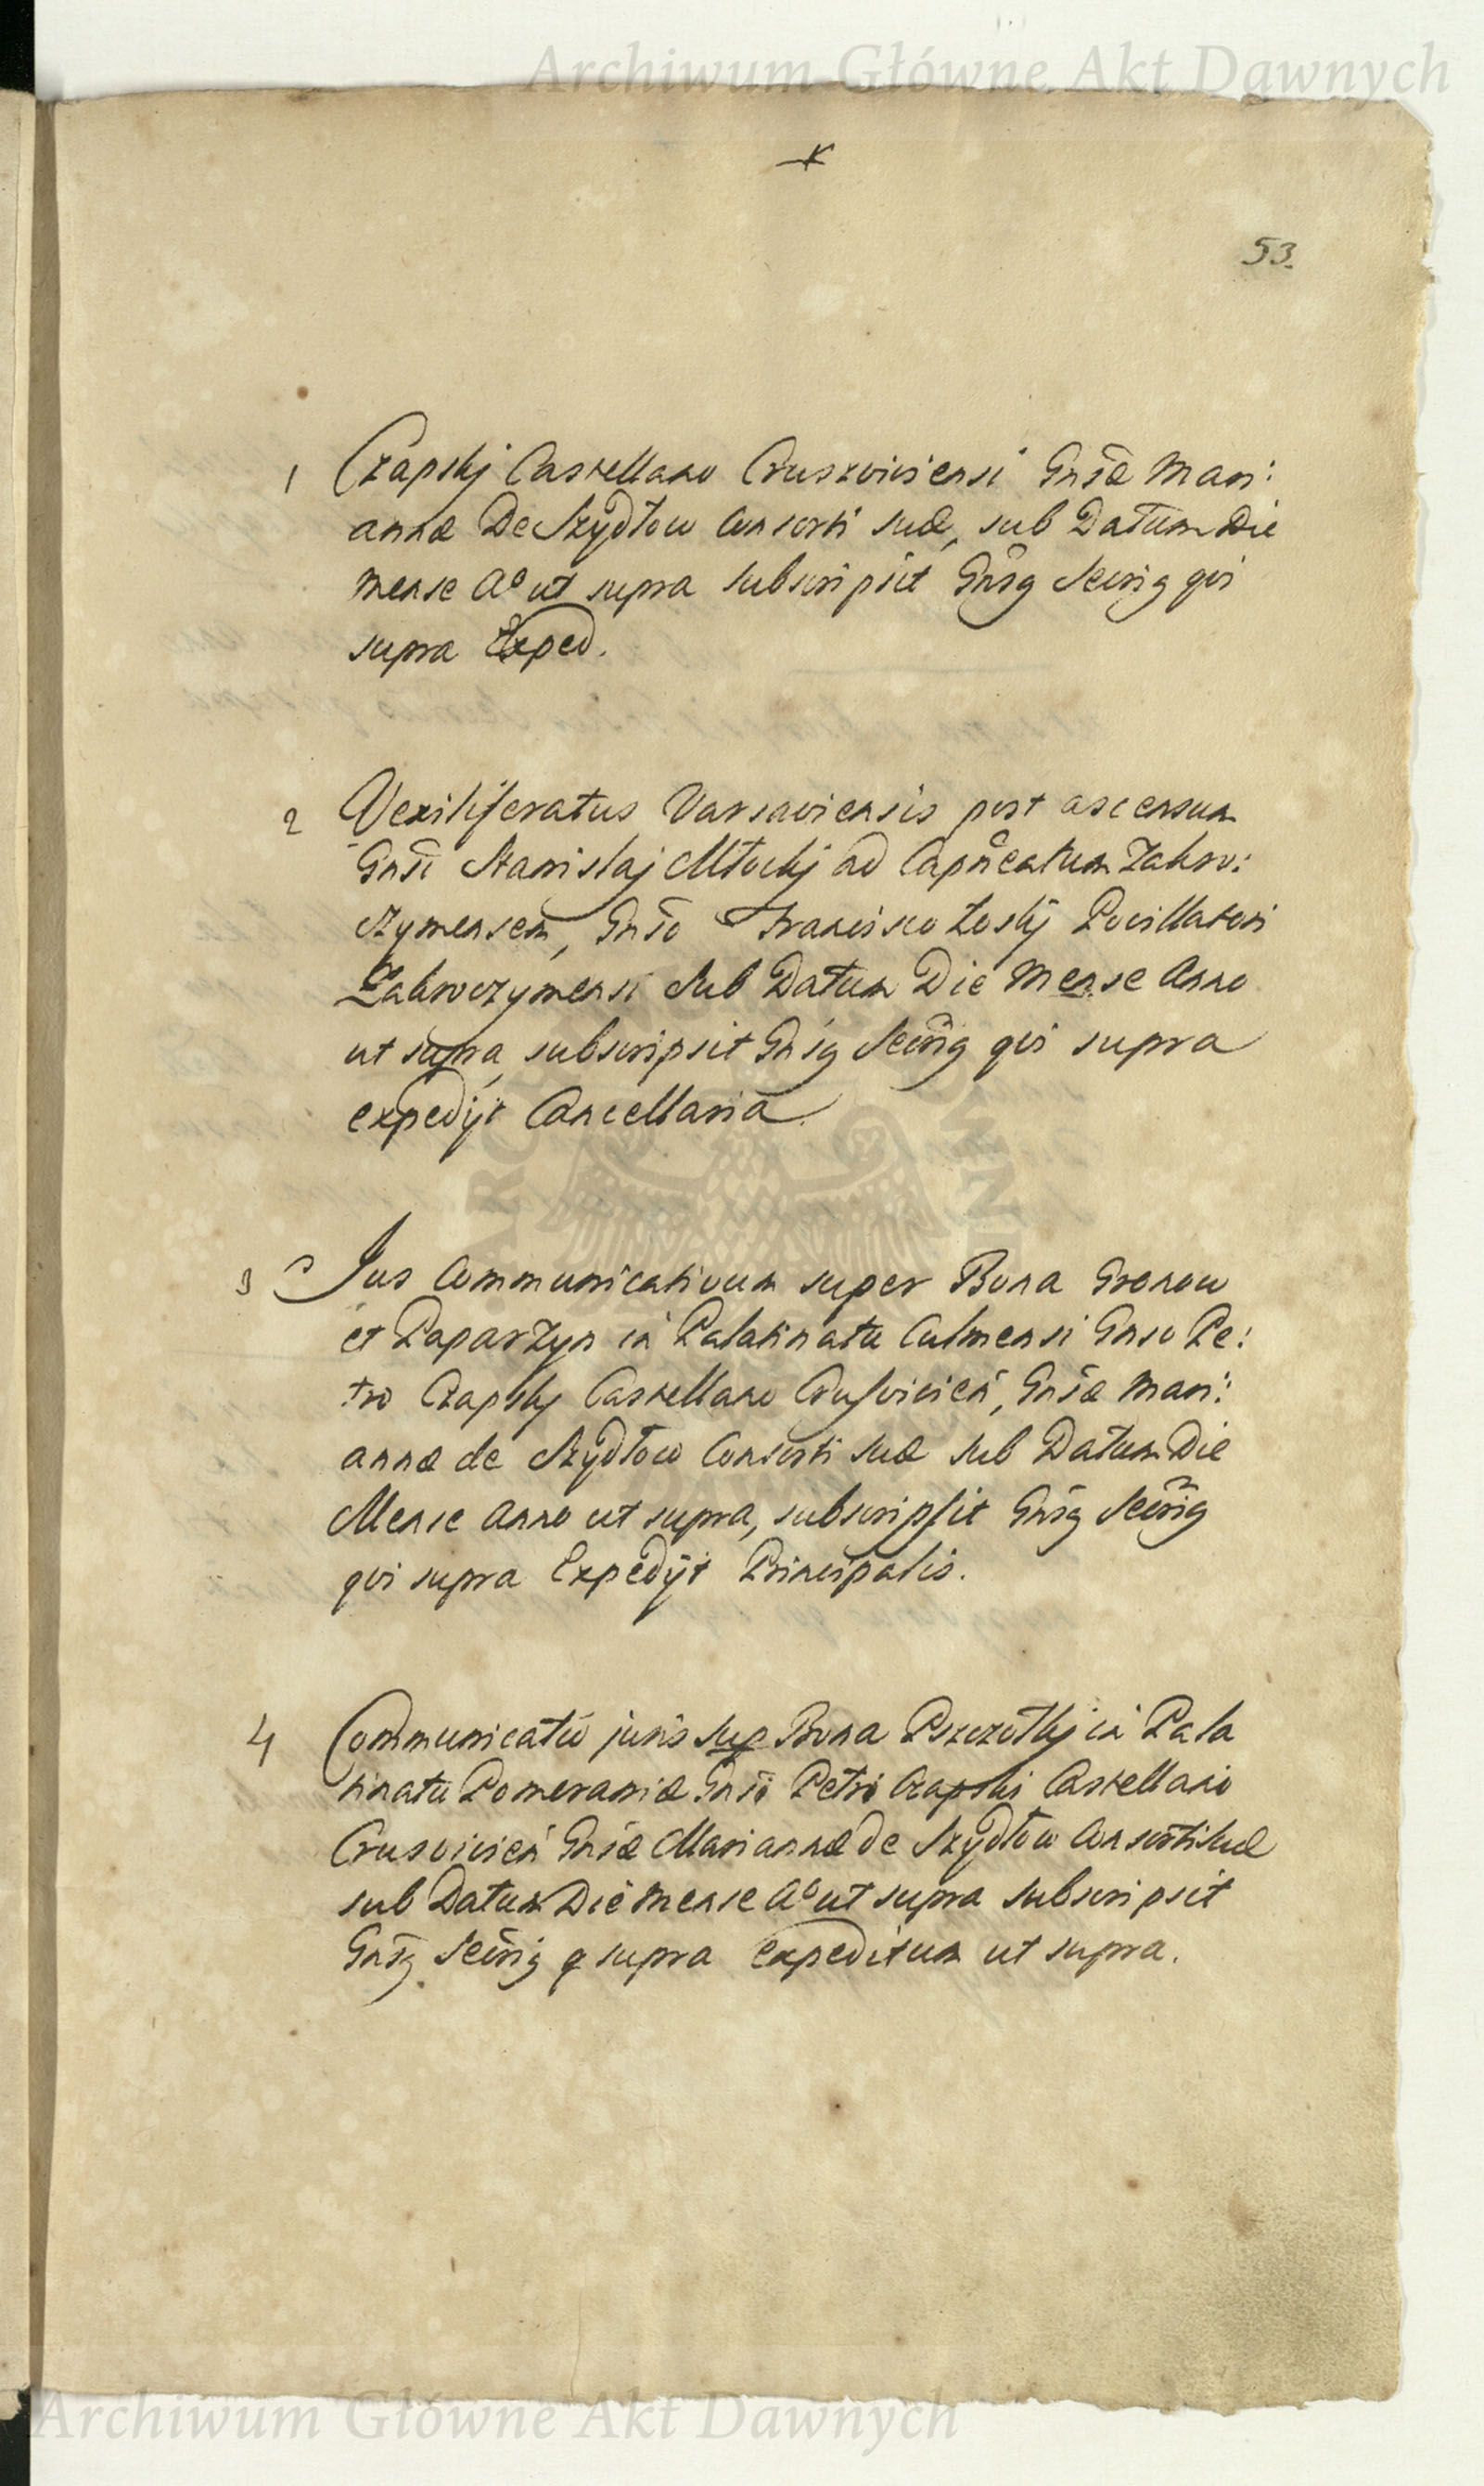 Archiwum Główne Akt Dawnych
53.
1 Czapskj Castellano Cruszviciensi Gnsæ Mari:
annæ De Szydłow Consorti suæ, sub Datum Die
Mense Aº ut supra subscripsit Gnsg Secrig qvi
supra Exped.
2 Vexiliferatus Varsaviensis post ascensum
Gnsi Stanislaj Młockj ad Capñeatum Zakro:
czymensem, Gnso Francisco Łoskj Pocillatori
Zakroczymensi Sub Datum Die Mense Anno
ut supra, subscripsit Gnsg Secrig qvi supra
expedijt Cancellaria.
3 Jus Communicativum super Bona Gronow
et Paparzyn in Palatinatu Culmensi Gnso Pe:
tro Czapskj Castellano Crusvicień, Gnsæ Mari:
annæ de Szydłow Consorti suæ sub Datum Die
Mense Anno ut supra, subscripsit Gnsg Secrig
qvi supra Expedijt Principalis.
4 Communicatio juris sup Bona Pszczołkj in Pala
tinatu Pomeraniæ Gnso Petro Czapski Castellano
Crusvicień Gnsæ Mariannæ de Szydłow Consorti suæ
sub Datum Die Mense Aº ut supra subscripsit
Gnsg Secrig q supra expeditum ut supra.
Archiwum Główne Akt Dawnych